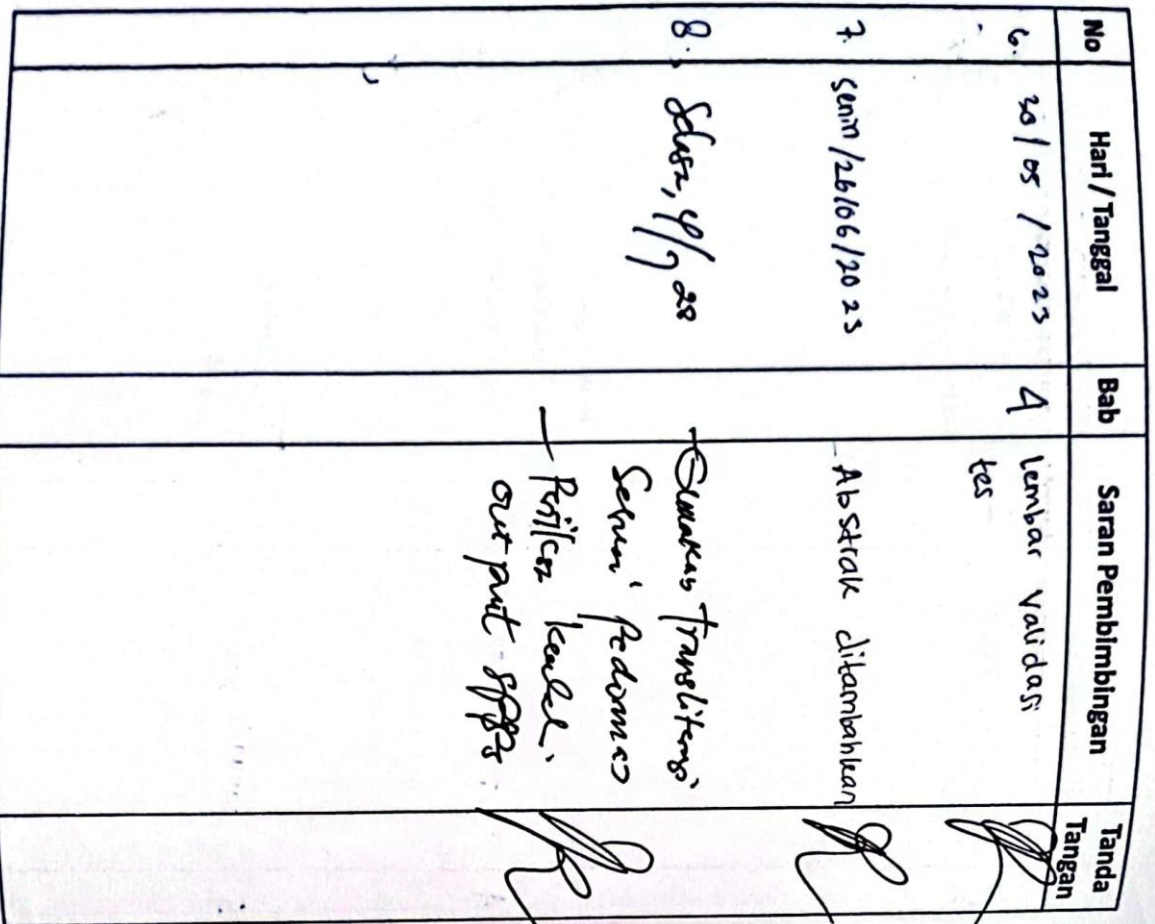 No Hari / Tanggal Bab Saran Pembimbingan Tanda Tangan
6. 30 / 05 / 2023 4 lembar validasi
tes
7. Senin / 26/06/2023 - Abstrak ditambahkan
8. Selasa, 4/7 23 - Gunakan Transliterasi
Sesuai Pedoman
- Periksa kembali
out put spss